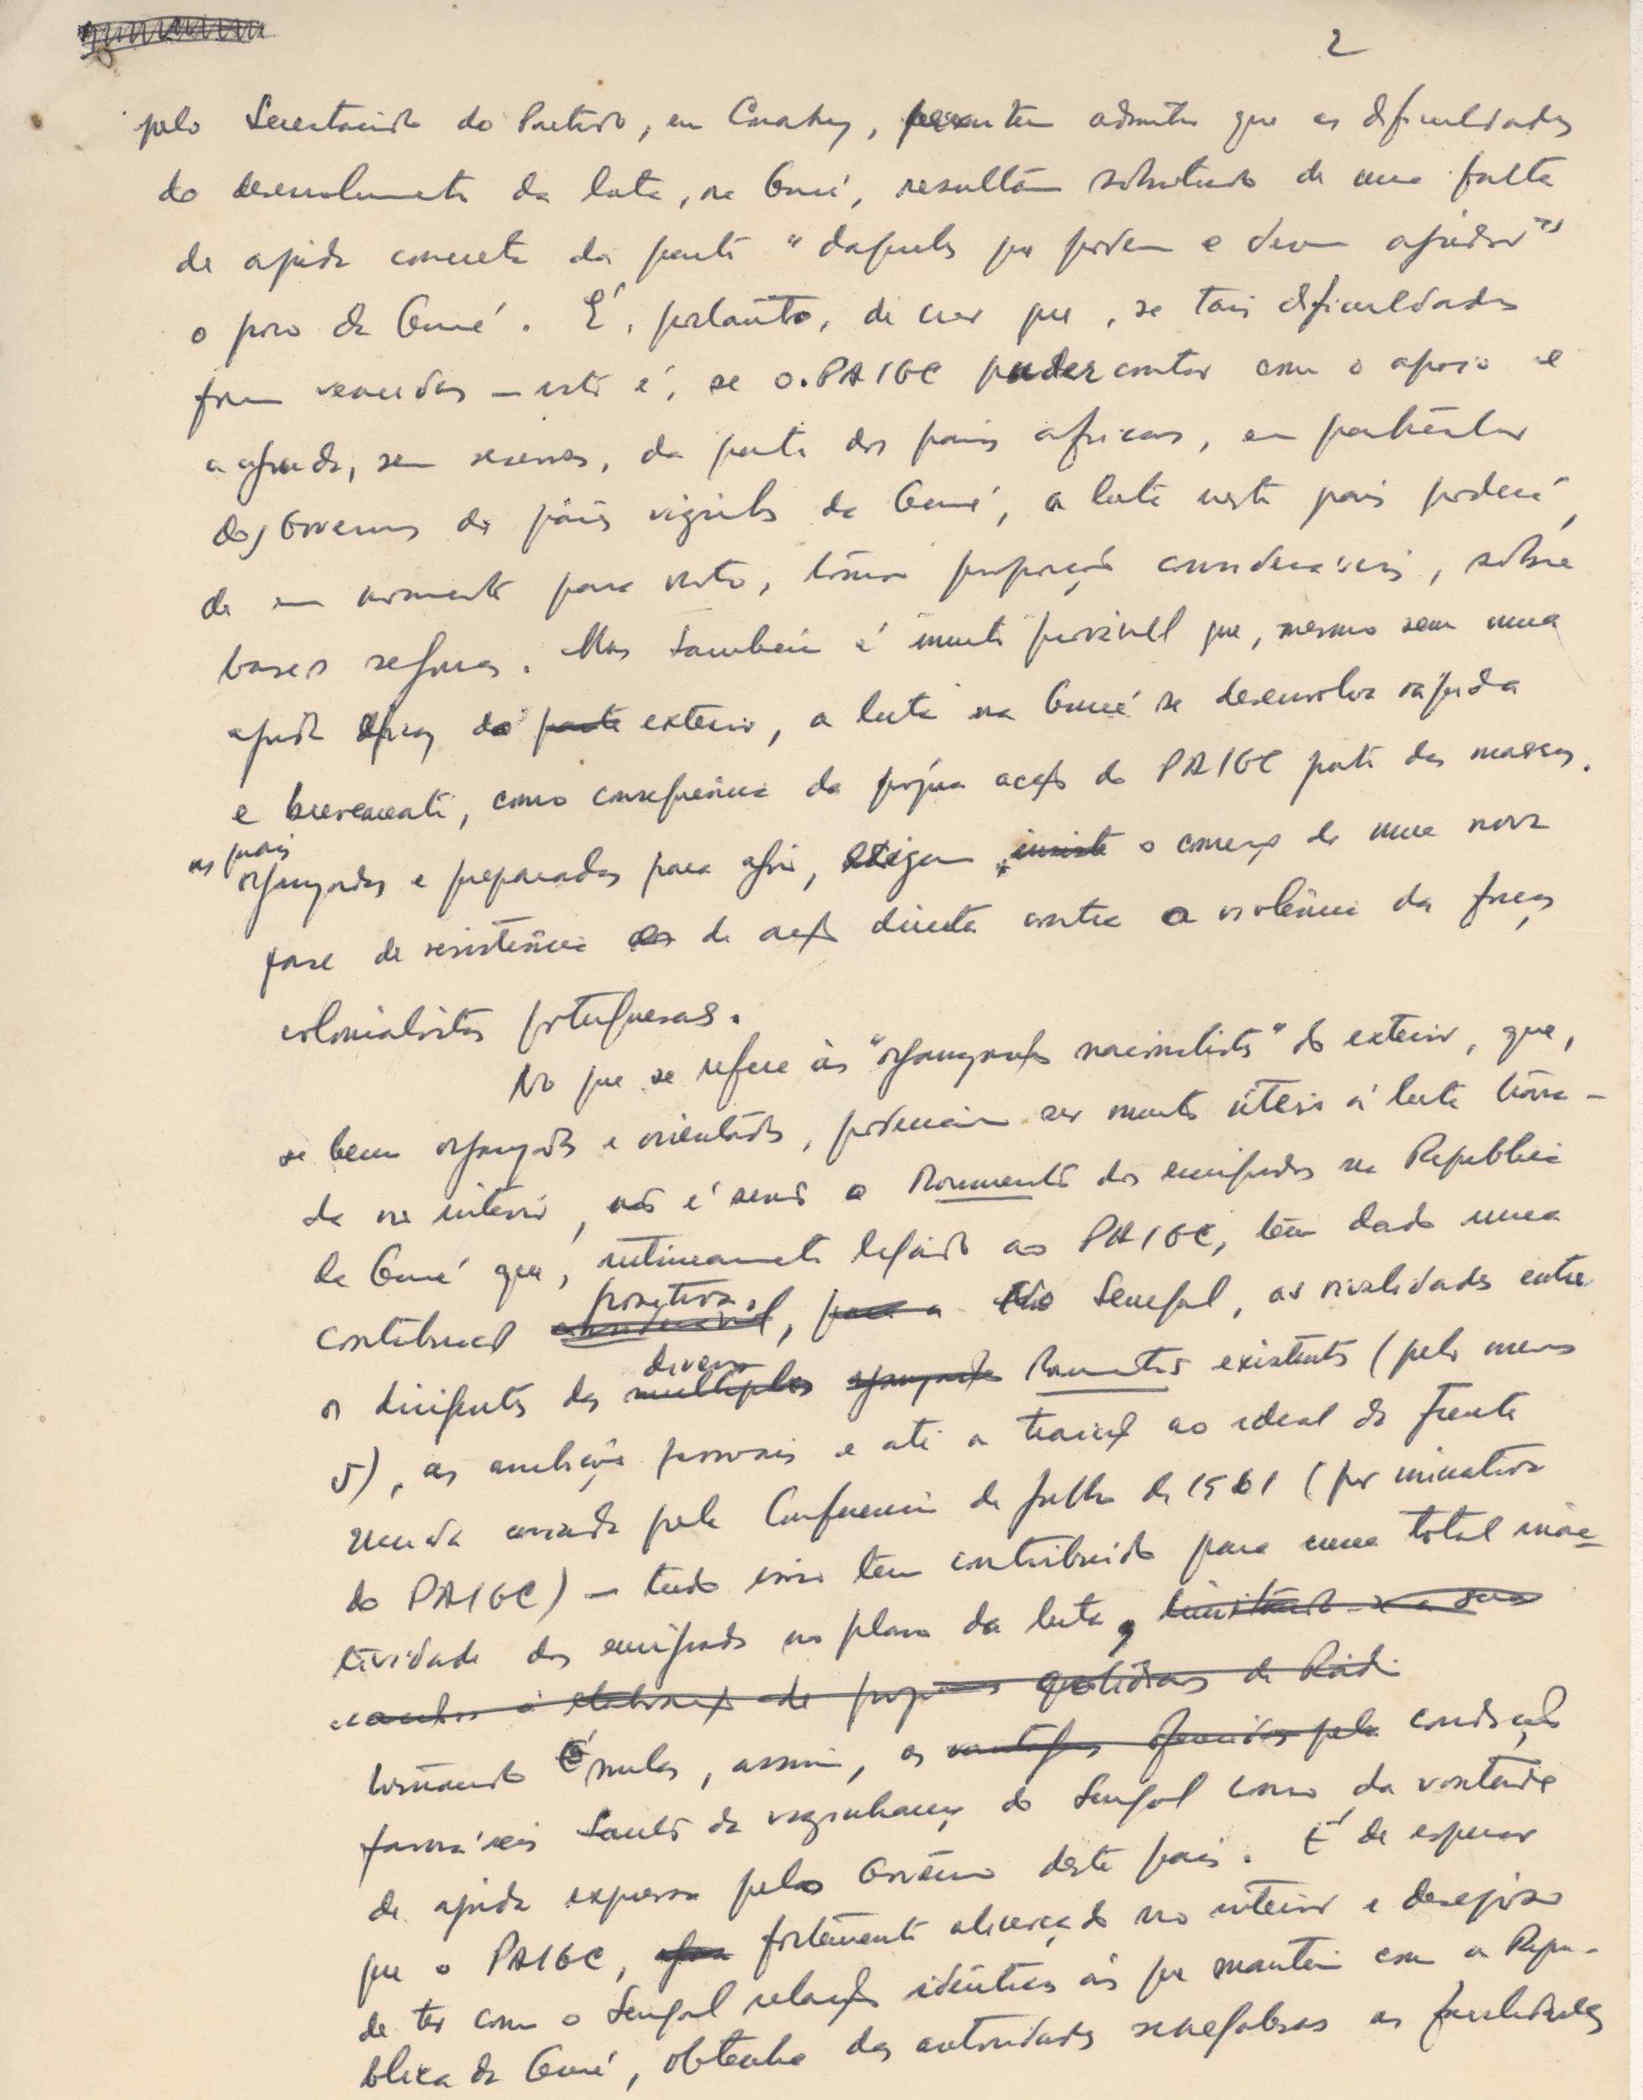 2
pelo Secretariado do Partido, em Conakry, permitem admitir que as dificuldades
do desenvolvimento da luta, na Guiné, resultam sobretudo de uma falta
de ajuda concreta da parte "daqueles que podem e devem ajudar"
o povo da Guiné. É, portanto, de crer que, se tais dificuldades
forem vencidas — isto é, se o PAIGC puder contar com o apoio e
a ajuda, sem reservas, da parte dos países africanos, em particular
dos Governos dos países vizinhos da Guiné, a luta neste país poderá,
de um momento para outro, tomar proporções consideráveis, sôbre
bases seguras. Mas também é muito provável que, mesmo sem uma
ajuda eficaz do parte exterior, a luta na Guiné se desenvolva rápida
e brevemente, como consequência da própria acção do PAIGC junto das massas.
as quais
organizadas e preparadas para agir, exigem o começo de uma nova
fase de resistência de acção directa contra a violência das forças
colonialistas portuguesas.
No que se refere às "organizações nacionalistas" do exterior, que,
se bem organizadas e orientadas, poderiam ser muito úteis à luta trava-
da no interior, não é senão o Movimento dos emigrados na República
da Guiné que, intimamente ligado ao PAIGC, tem dado uma
positiva.
contribuição considerável, para a No Senegal, as rivalidades entre
diversos
os dirigentes dos multiplos organizações Movimentos existentes (pelo menos
5), as ambições pessoais e até a traição ao ideal da Frente
Unida criada pela Conferência de Julho de 1961 (por iniciativa
do PAIGC) — tudo isso tem contribuido para uma total inac-
tividade dos emigrados no plano da luta, limitando-se a sua
à elaboração de programas quotidianos de Rádio
tornando nulas, assim, as vantagens oferecidas pela condições
favoráveis tanto da vizinhança do Senegal como da vontade
de ajuda expressa pelo Govêrno deste país. É de esperar
que o PAIGC, fortemente alicerçado no interior e desejoso
de ter com o Senegal relações idênticas às que mantém com a Repú-
blica da Guiné, obtenha das autoridades senegalesas as facilidades